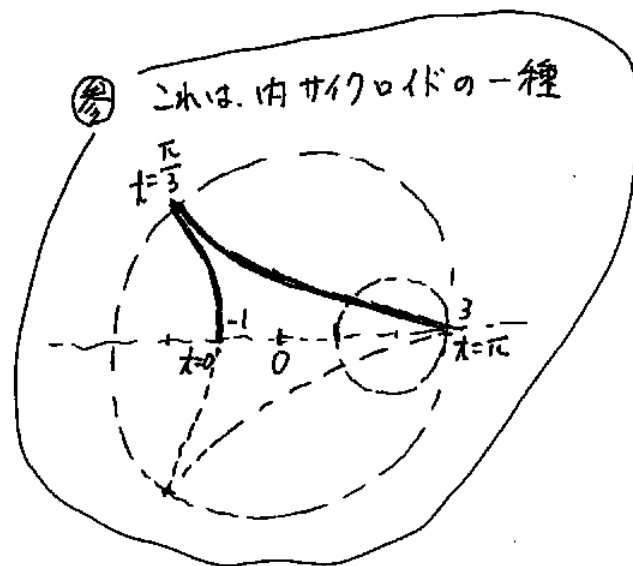 参 これは、内サイクロイドの一種
t=π/3
-1 3
t=0 0 t=π